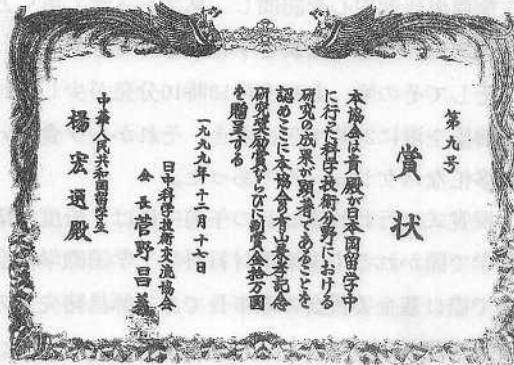 第九号
賞状
本協会は貴殿が日本国留学中
に行った科学技術分野における
研究の成果が顕著であることを
認めここに本協会有山兼孝記念
研究奨励賞ならびに副賞金拾万円
を贈呈する
一九九九年十二月十六日
日中科学技術交流協会
会長 菅野昌義
中華人民共和国留学生
楊宏選殿